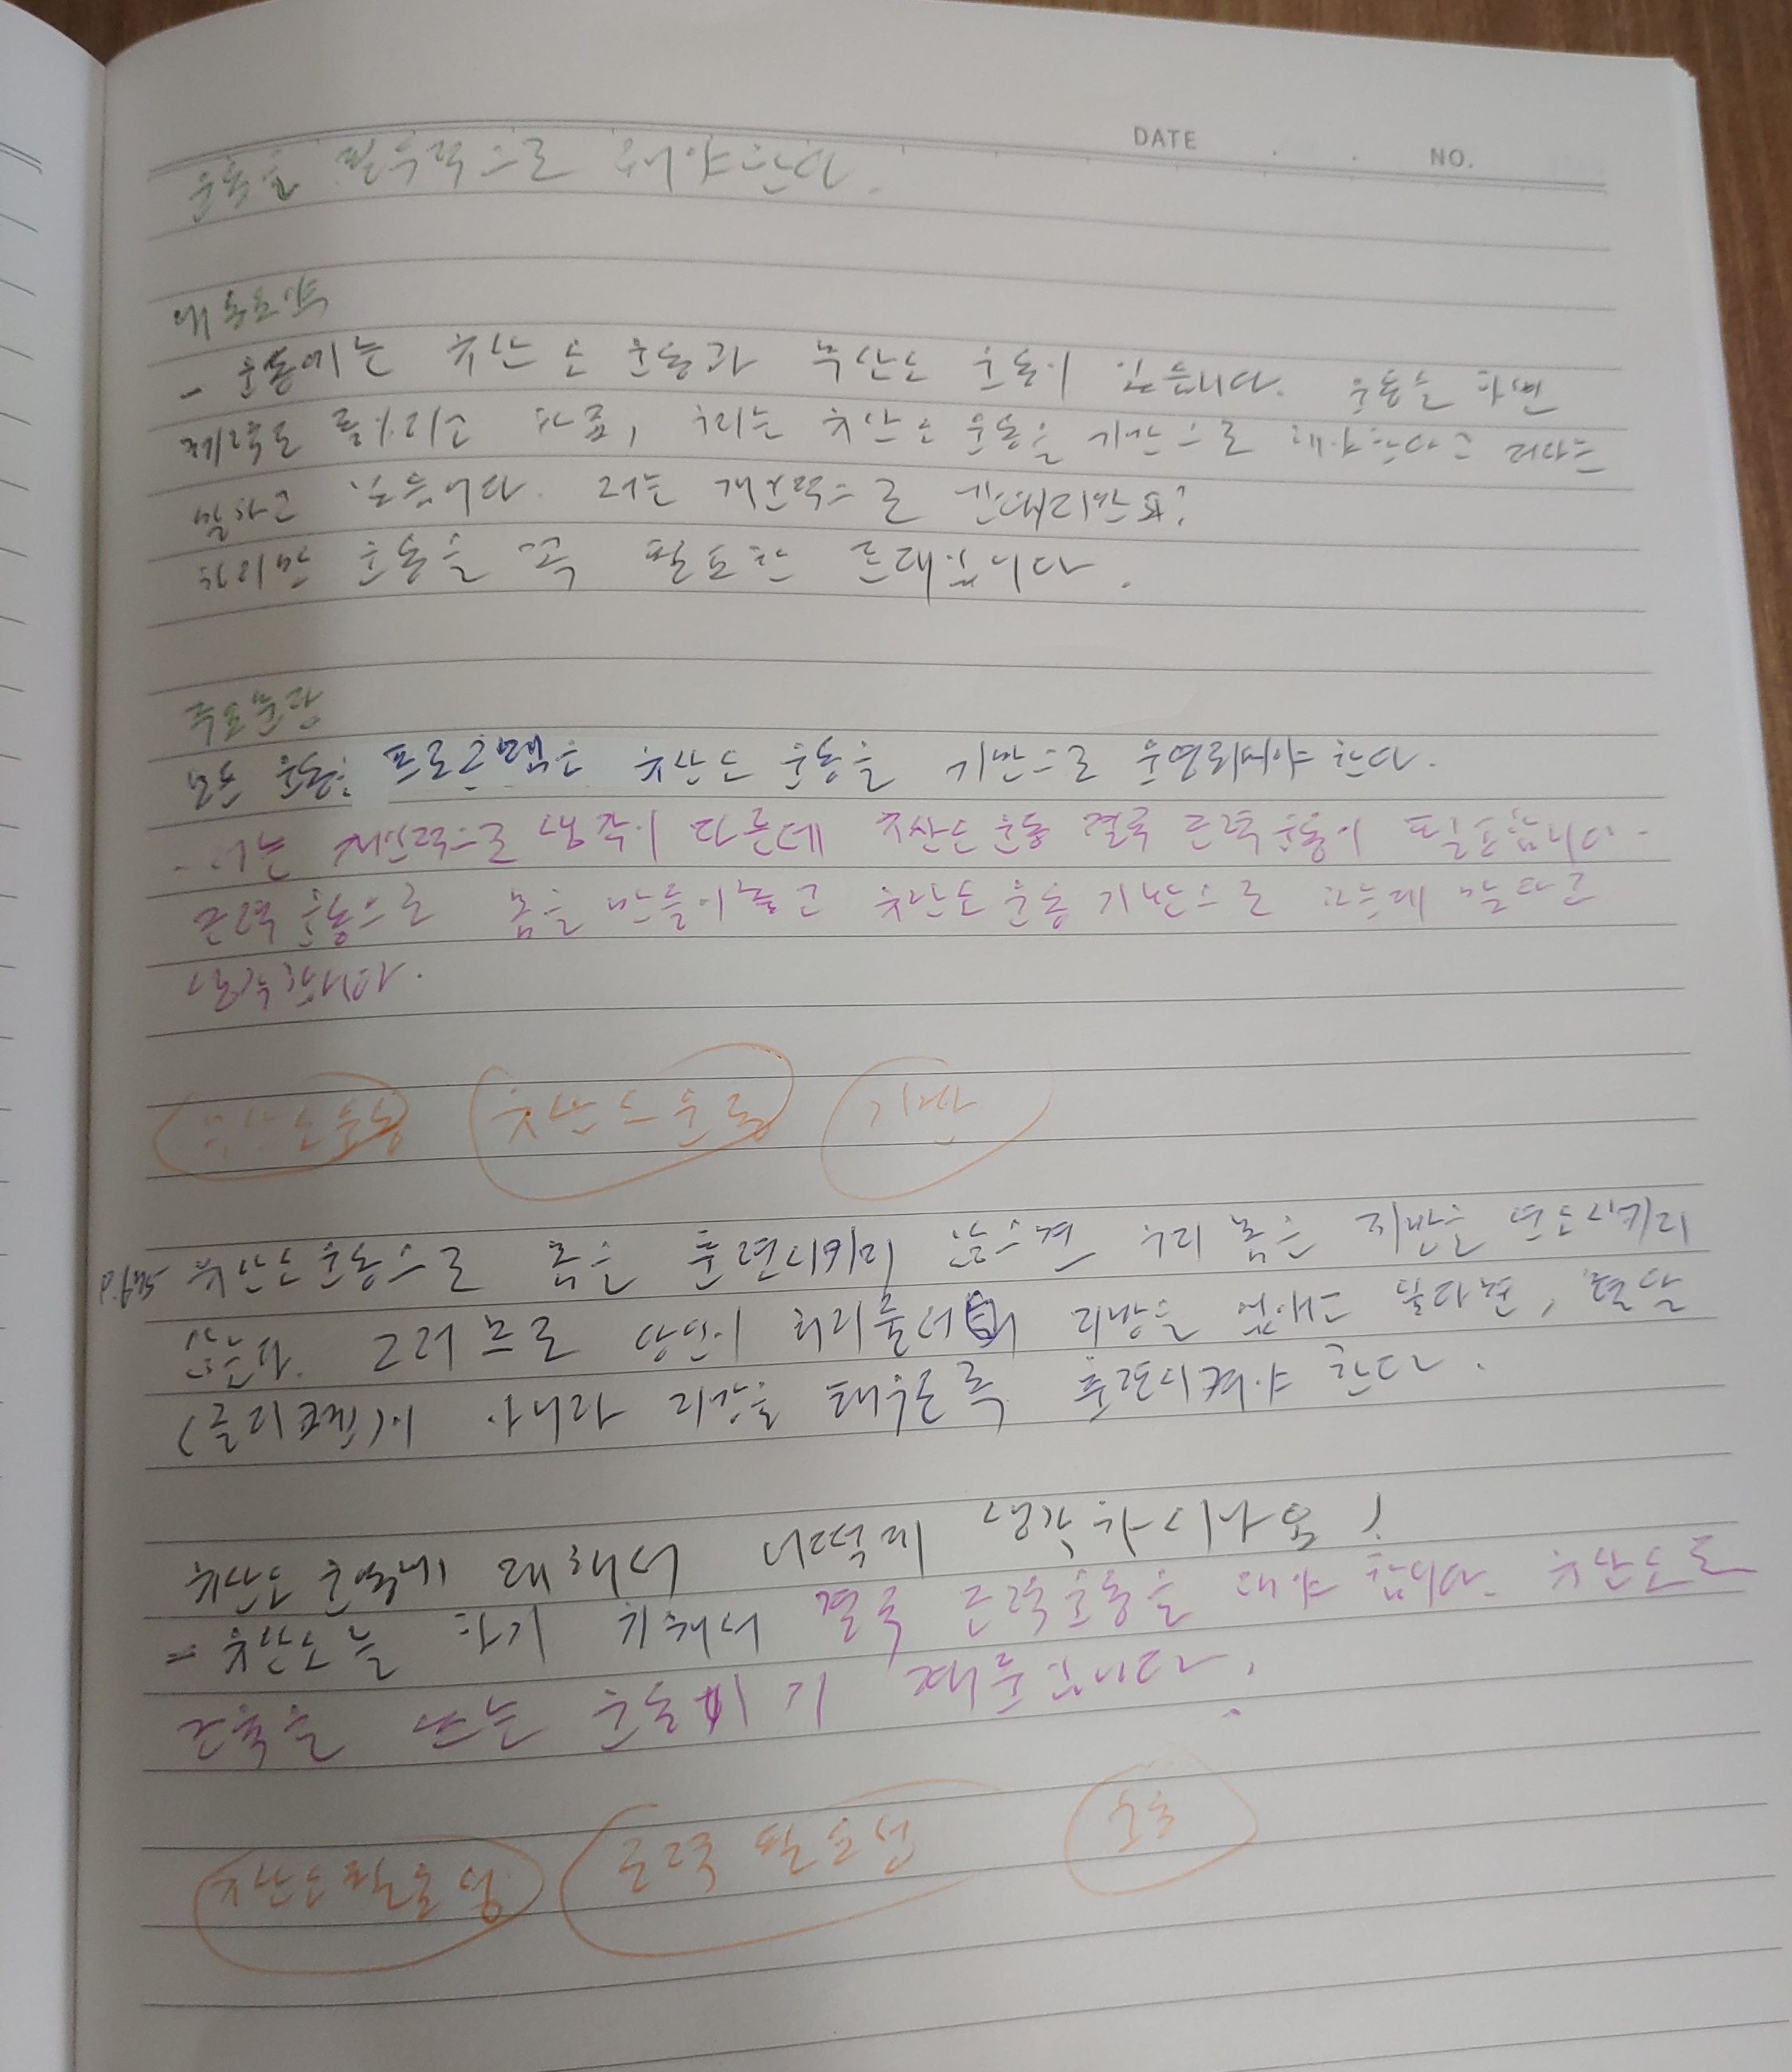 DATE . . NO.
운동은 필수적으로 해야한다.
내용요약
- 운동에는 유산소 운동과 무산소 운동이 있습니다. 운동을 하면
체력도 하고, 우리는 유산소 운동을 기반으로 해야한다고
말하고 있습니다. 저는 개인적으로 반대지만요?
하지만 운동은 꼭 필요한 존재입니다.
주요문장
모든 운동 프로그램은 유산소 운동을 기반으로 운영되어야 한다.
- 저는 개인적으로 생각이 다른데 유산소 운동 결국 근력 운동이 필요합니다.
근력 운동으로 몸을 만들어놓고 유산소 운동 기반으로 하는게 맞다고
생각합니다.
무산소운동 유산소운동 기반
유산소운동으로 몸을 훈련시키지 않으면 우리 몸은 지방을 연소시키지
않는다. 그러므로 당신이 허리둘레의 지방을 없애고 싶다면,
이 아니라 지방을 태우도록 훈련시켜야 한다.
유산소 운동에 대해서 어떻게 생각하시나요?
- 유산소를 하기 위해서 결국 근력운동을 해야 합니다. 유산소도
근육을 쓰는 운동이기 때문입니다.
유산소필요성 근력 필요성 운동